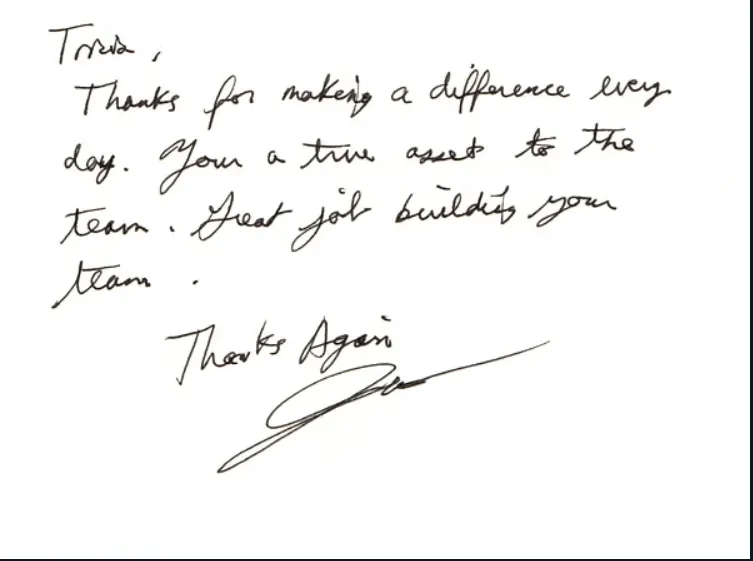 Thanks for making a difference every
day. Your a true asset to the
team. Great job building your
team.
Thanks Again